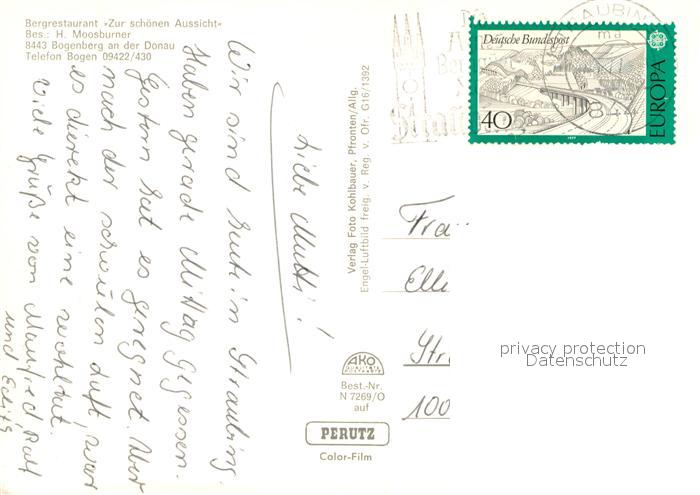 Bergrestaurant »Zur schönen Aussicht«
Bes.: H. Moosburner
8443 Bogenberg an der Donau
Telefon Bogen 09422/430
Liebe Mutti!
Wir sind heute in Straubing.
Haben gerade Mittag gegessen.
Gestern hat es geregnet. Aber
nach der schwülen Luft, war
es direkt eine Wohltat.
Viele Grüße von Manfred, Ralf
und Edith
Verlag Foto Kohlbauer, Pfronten/Allg.
Engel-Luftbild freig. v. Reg. v. Ofr. G16/1392
AKO
Best.-Nr.
N 7269/O
auf
PERUTZ
Color-Film
Deutsche Bundespost
40
1977
EUROPA
Fra
Elli
Str
100
privacy protection
Datenschutz